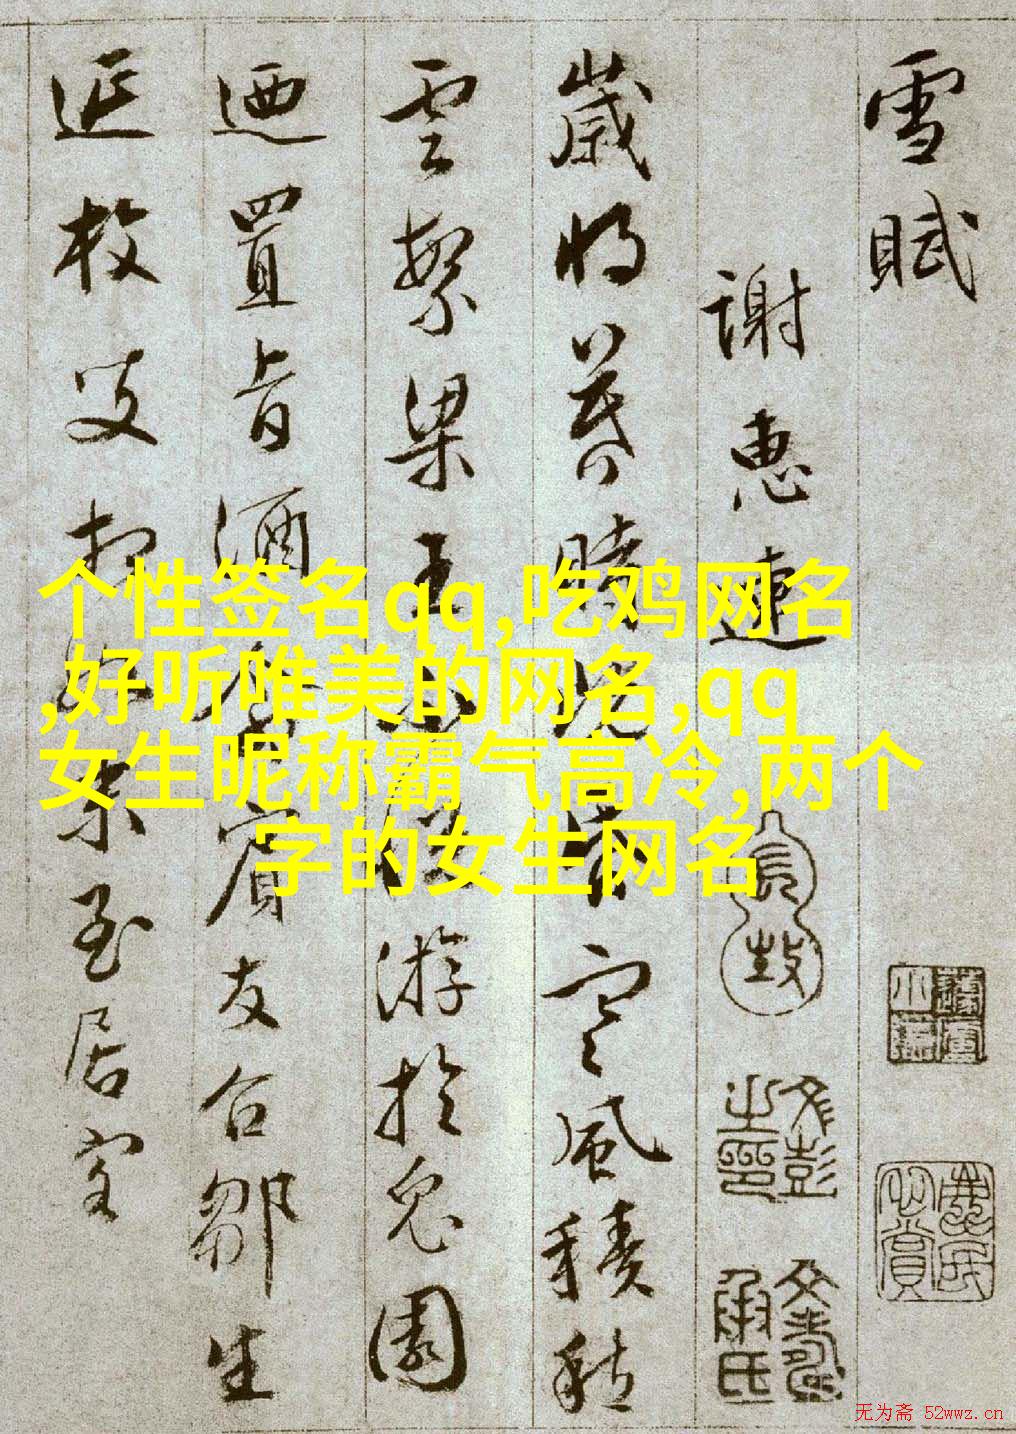 雪賦
謝惠連
歲將暮時既昏寒風積愁
雲繁梁王不悅游於兔園
迺置旨酒命賓友召鄒生
延枚叟相如末至居客
文彭之印
文壽承氏
个性签名qq,吃鸡网名
,好听唯美的网名,qq
女生昵称霸气高冷,两个
字的女生网名
无为斋 52wwz.cn